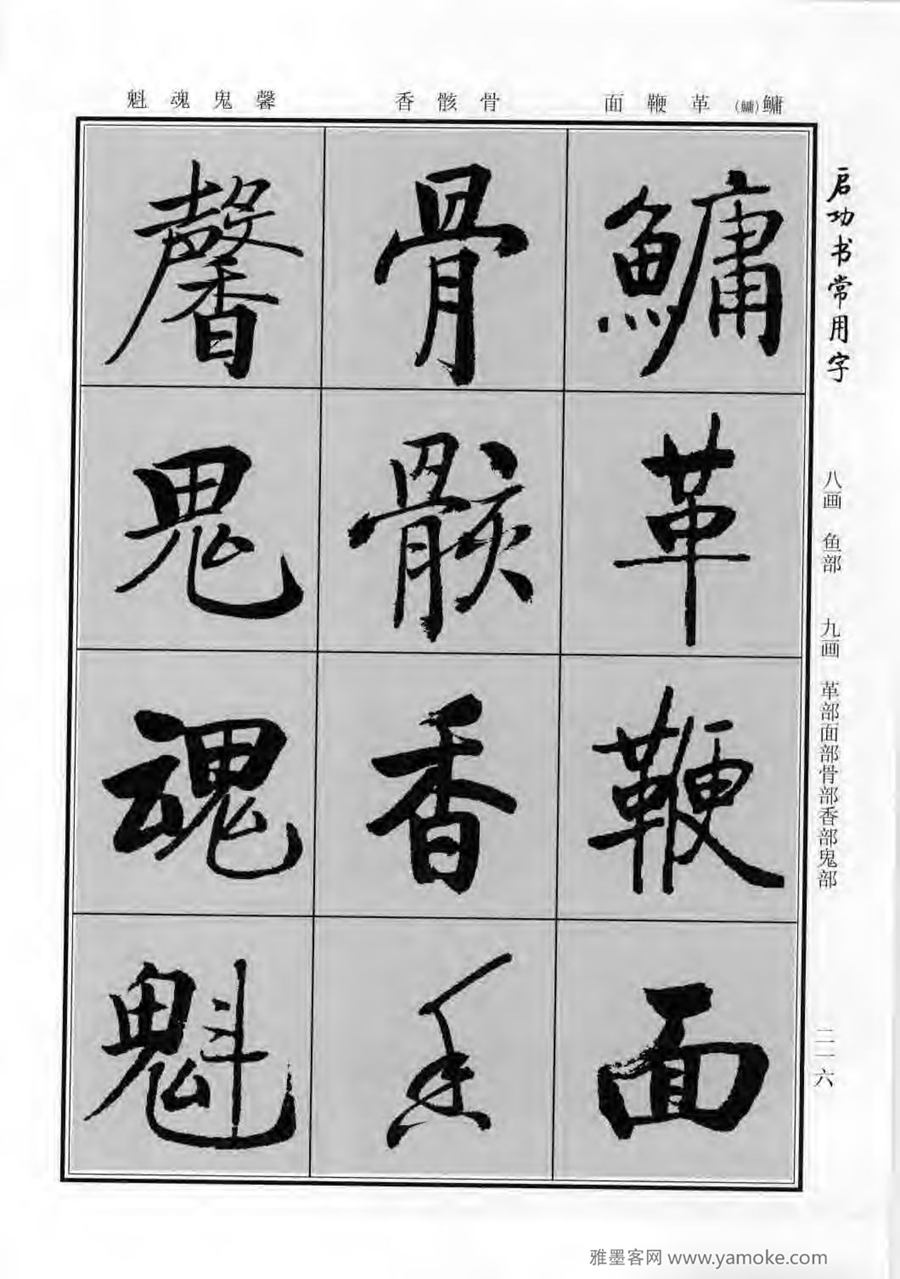 鳙(鱅) 革 鞭 面
骨 骸 香
馨 鬼 魂 魁
启功书常用字
八画 鱼部 九画 革部面部骨部香部鬼部
二一六
鱅
革
鞭
面
骨
骸
香
香
馨
鬼
魂
魁
雅墨客网 www.yamoke.com